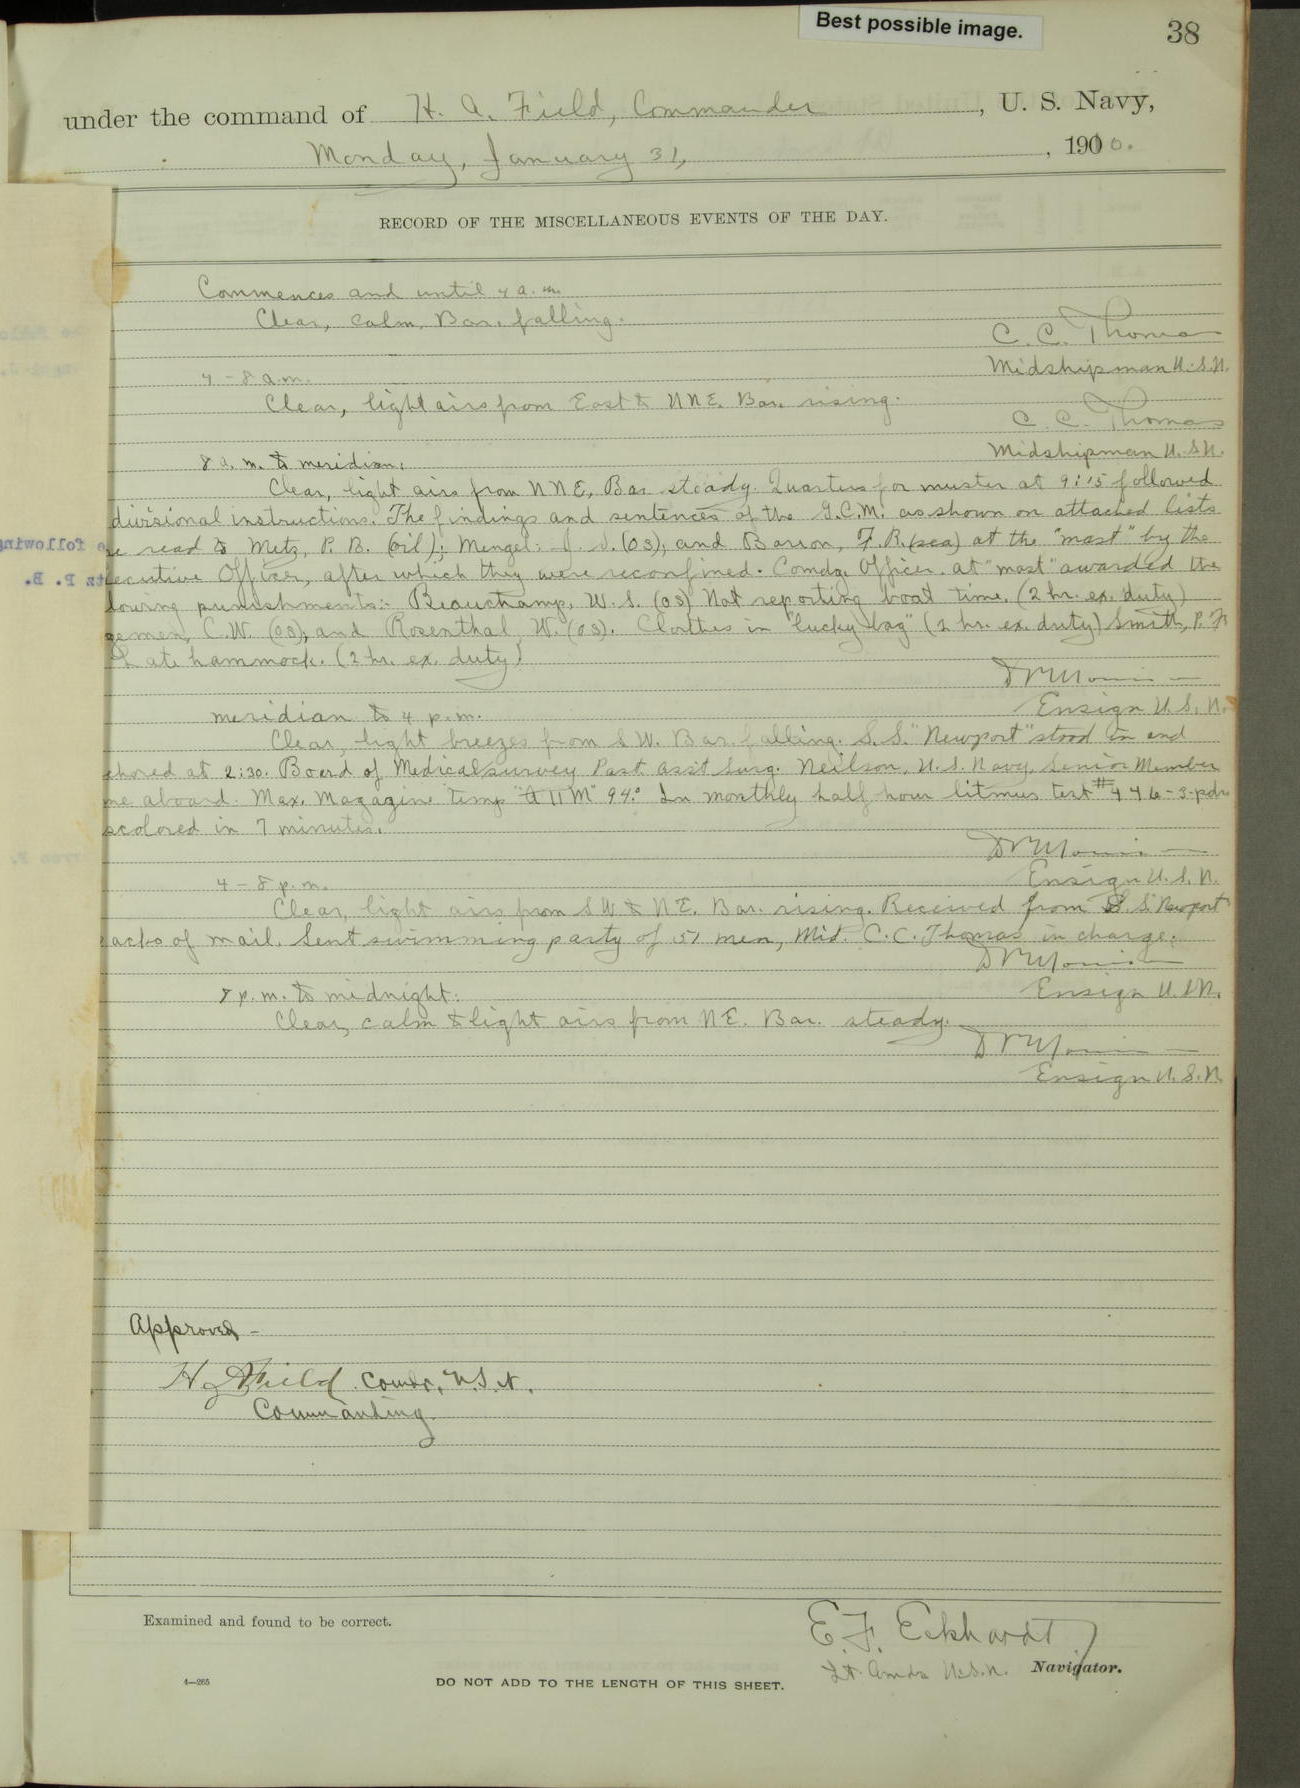 Best possible image.
38
under the command of H. A. Field, Commander, U. S. Navy,
Monday, January 31, 1900.
RECORD OF THE MISCELLANEOUS EVENTS OF THE DAY.
Commences and until 4 a. m.
Clear, calm, Bar. falling.
C. C. Thomas
Midshipman U.S.N.
4 - 8 a.m.
Clear, light airs from East to NNE. Bar. rising.
C. C. Thomas
Midshipman U.S.N.
8 a. m. to meridian:
Clear, light airs from NNE, Bar steady. Quarters for muster at 9:15 followed
divisional instructions. The findings and sentences of the G.C.M. as shown on attached lists
re read to Metz, P. B. (oil); Mengel, J. (OS), and Barron, F. R. (sea) at the "mast" by the
ecutive Officer, after which they were reconfined. Comdg. Officer at "mast" awarded the
lowing punishments:- Beauchamp, W. S. (OS) Not reporting boat time. (2 hr. ex. duty)
gemen, C.W. (OS), and Rosenthal, W. (OS). Clothes in "lucky bag" (2 hr. ex. duty) Smith, P. F.
Late hammock. (2 hr. ex. duty)
Ensign U.S.N.
meridian to 4 p.m.
Clear, light breezes from SW. Bar. falling. S.S. "Newport" stood in and
chored at 2:30. Board of Medical survey Past Ass't Surg. Neilson, U.S. Navy, Senior Member
me aboard. Max. Magazine temp "A 11 M" 94.° In monthly half hour litmus test #446-3-pdr
scolored in 7 minutes.
Ensign U.S.N.
4 - 8 p.m.
Clear, light airs from SW to NE. Bar. rising. Received from S.S. Newport
acks of mail. Sent swimming party of 51 men, Mid. C. C. Thomas in charge.
Ensign U.S.N.
8 p.m. to midnight:
Clear, calm to light airs from NE. Bar. steady.
Ensign U.S.N.
Approved -
H A Field Comdr, U.S.N.
Commanding
Examined and found to be correct.
E. F. Eckhardt
U.S.N. Navigator.
4—265
DO NOT ADD TO THE LENGTH OF THIS SHEET.